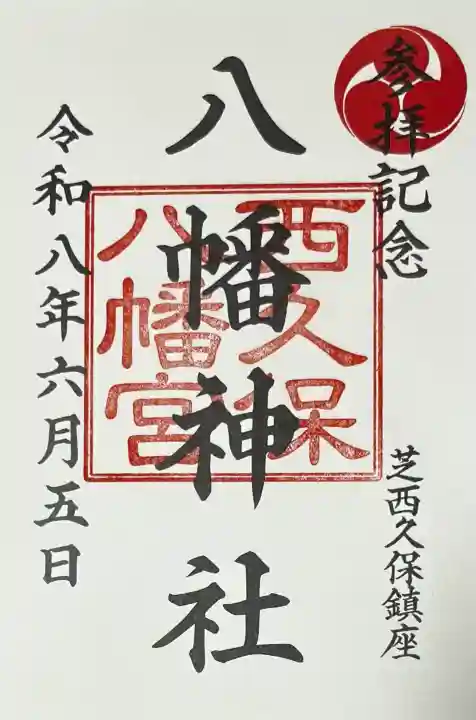 参拝記念
芝西久保鎮座
八幡神社
西久保
八幡宮
令和八年六月五日